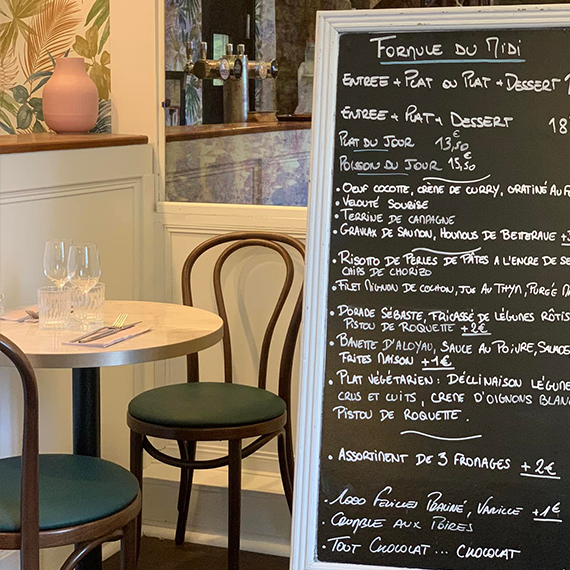 FORMULE DU MIDI
ENTREE + PLAT OU PLAT + DESSERT
ENTREE + PLAT + DESSERT 18
PLAT DU JOUR 13,50€
POISSON DU JOUR 15,50€
• OEUF COCOTTE, CRÈME DE CURRY, GRATINÉ AU
• VELOUTÉ SOUBISE
• TERRINE DE CAMPAGNE
• GRAVLAX DE SAUMON, HOUMOUS DE BETTERAVE +
• RISOTTO DE PERLES DE PÂTES A L'ENCRE DE
CHIPS DE CHORIZO
• FILET MIGNON DE COCHON, JUS AU THYM, PURÉE
• DORADE SÉBASTE, FRICASSÉ DE LÉGUMES RÔTIS
PISTOU DE ROQUETTE +2€
• BAVETTE D'ALOYAU, SAUCE AU POIVRE,
FRITES MAISON +1€
• PLAT VÉGÉTARIEN : DÉCLINAISON LÉGUMES
CRUS ET CUITS, CRÈME D'OIGNONS
PISTOU DE ROQUETTE.
• ASSORTIMENT DE 3 FROMAGES +2€
• 1000 FEUILLES PRALINÉ, VANILLE +1€
• CRUMBLE AUX POIRES
• TOUT CHOCOLAT... CHOCOLAT